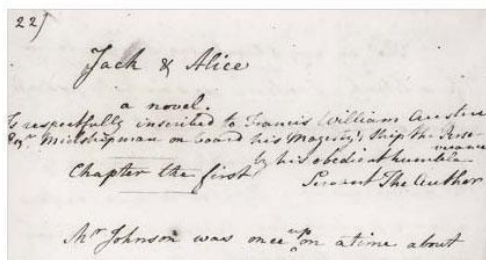 22)
Jack & Alice
a novel.
Is respectfully inscribed to Francis William Austen
Esqr Midshipman on board his Majesty's Ship the Perse-
verance
by his obedient humble
Chapter the first Servant The Author
Mr Johnson was once upon a time about